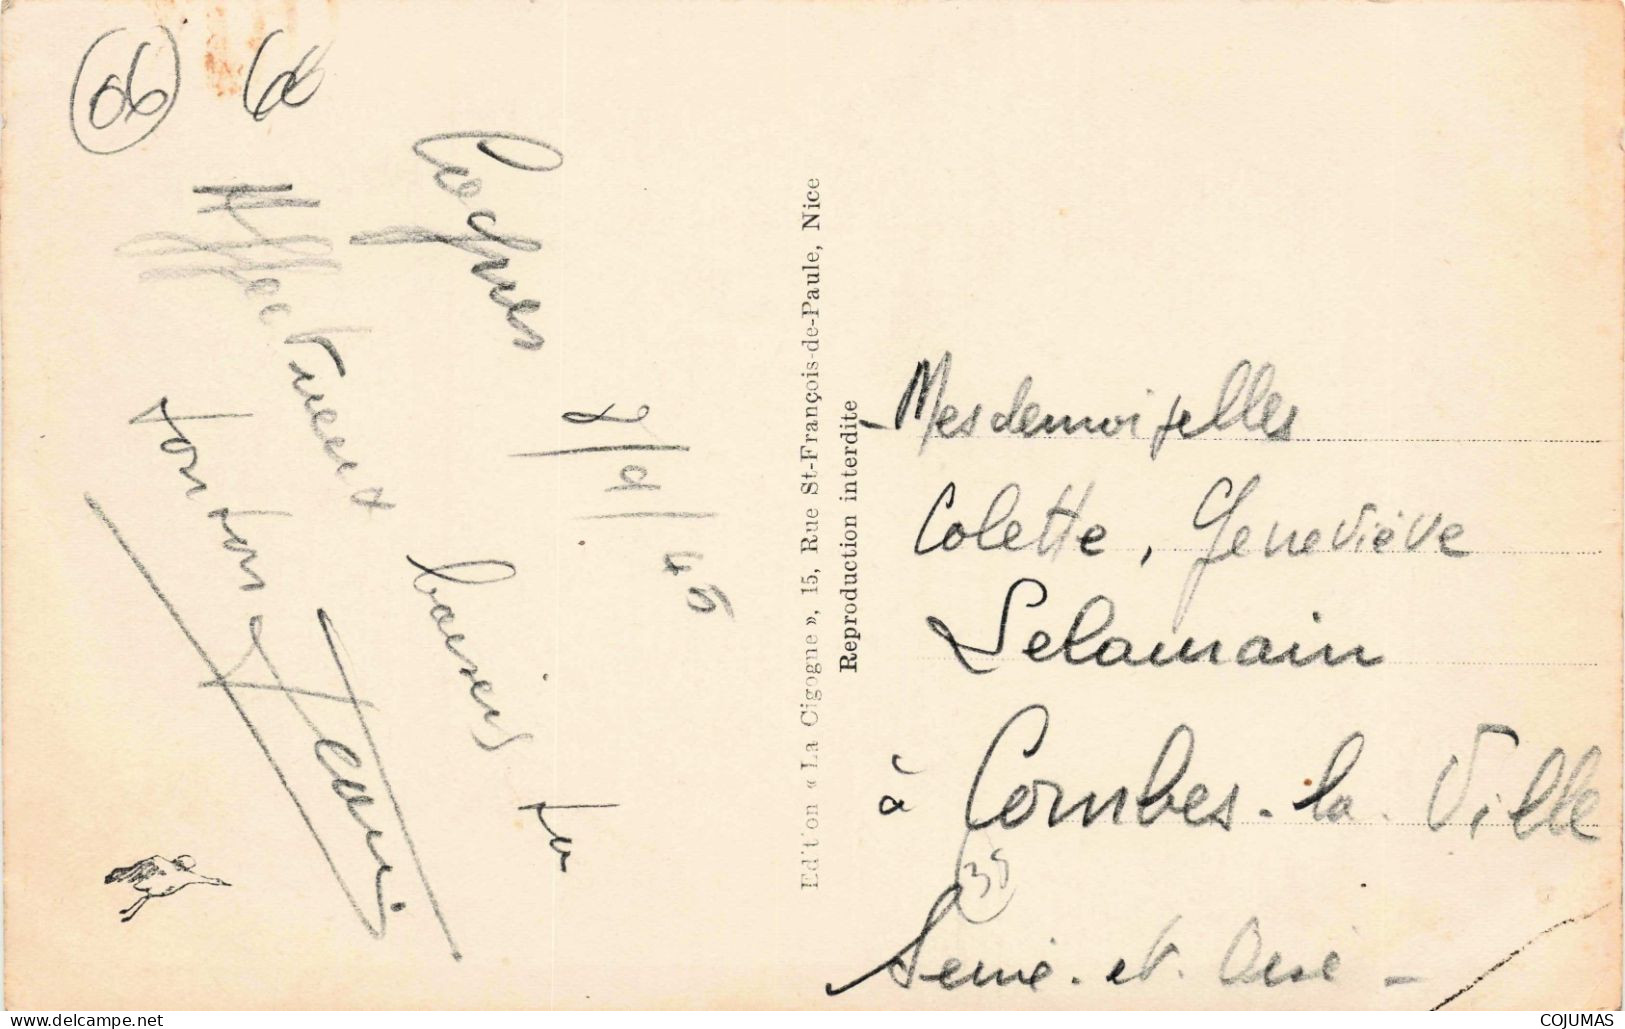 06
60
Cagnes
7/9/45
Affectueux baisers
tonton
Edition « La Cigogne », 15, Rue St-François-de-Paule, Nice
Reproduction interdite
Mesdemoiselles
Colette, Geneviève
Delamain
à Combes-la-Ville
35
Seine-et-Oise -
delcampe.net
COJUMAS